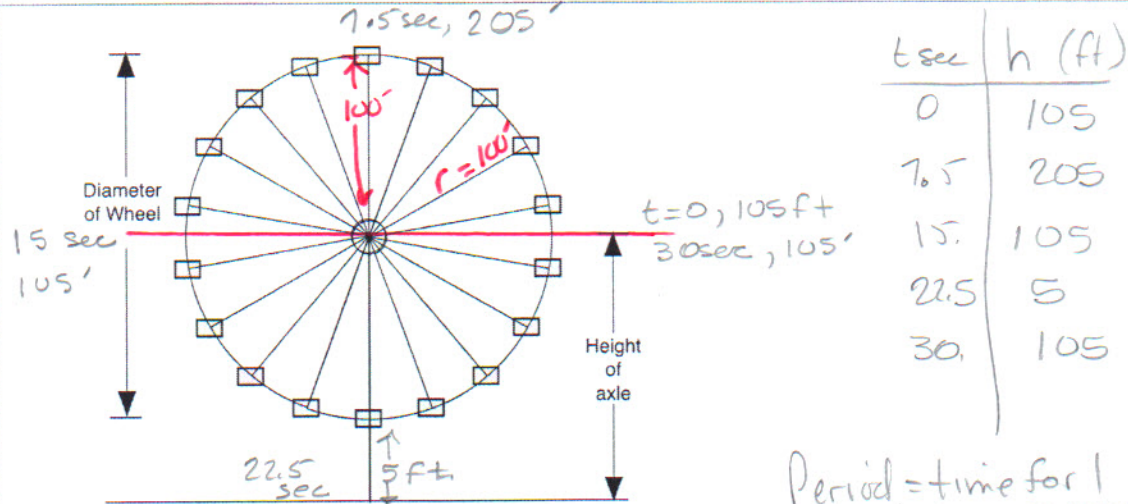 7.5 sec, 205'
100'
r=100'
Diameter
of Wheel
15 sec
105'
t=0, 105 ft
30sec, 105'
Height
of
axle
22.5
sec
5 ft.
t sec h (ft)
0 105
7.5 205
15. 105
22.5 5
30. 105
Period = time for 1